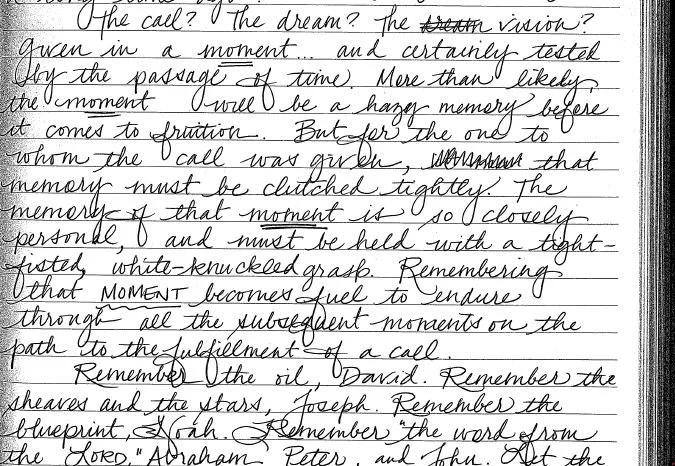 The call? The dream? The vision?
given in a moment... and certainly tested
by the passage of time. More than likely,
the moment will be a hazy memory before
it comes to fruition. But for the one to
whom the call was given, that
memory must be clutched tightly. The
memory of that moment is so closely
personal, and must be held with a tight-
fisted, white-knuckled grasp. Remembering
that MOMENT becomes fuel to endure
through all the subsequent moments on the
path to the fulfillment of a call.
Remember the oil, David. Remember the
sheaves and the stars, Joseph. Remember the
blueprint, Noah. Remember "the word from
the LORD," Abraham, Peter, and John. Let the